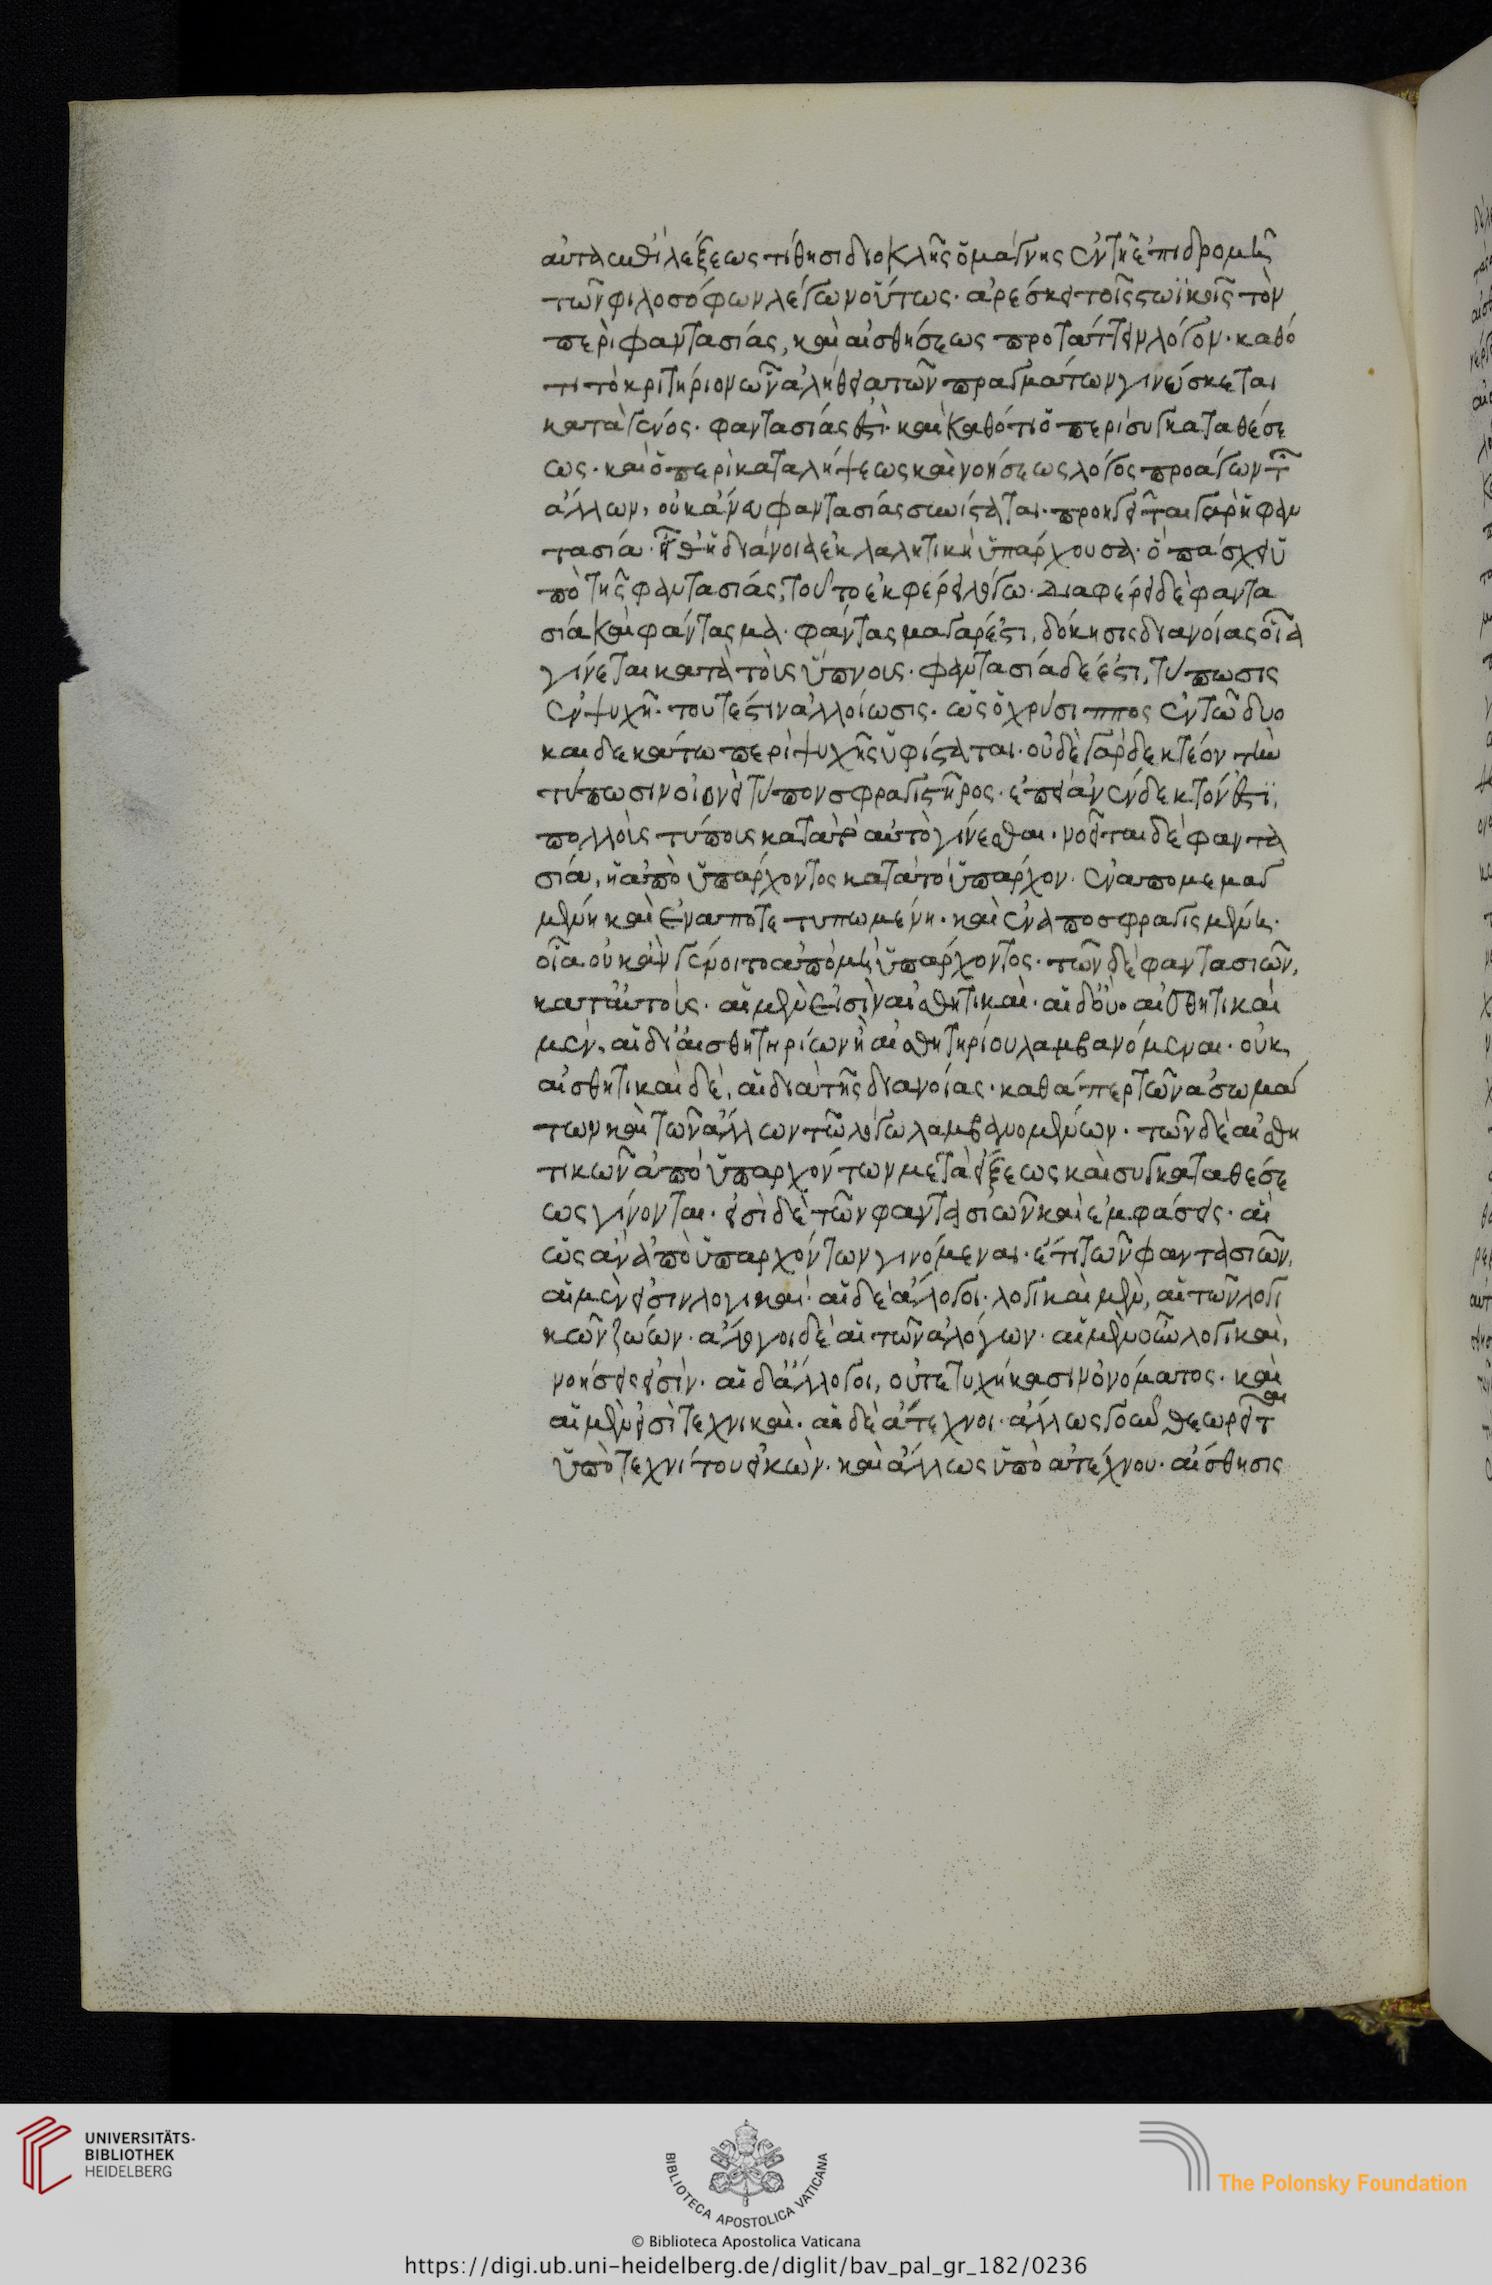 αὐτὰ ἐπὶ λέξεως τίθησι διοκλῆς ὁ μάγνης ἐν τῆ ἐπιδρομῆ
τῶν φιλοσόφων λέγων οὕτως· ἀρέσκει τοῖς στωϊκοῖς τὸν
περὶ φαντασίας, καὶ αἰσθήσεως προτάττειν λόγον· καθό
τι τὸ κριτήριον ὧ ἡ ἀλήθεια τῶν πραγμάτων γινώσκεται
κατὰ γένος· φαντασίας ἐστὶ· καὶ καθότι ὁ περὶ συγκαταθέσε
ως· καὶ ὁ περὶ καταλήψεως καὶ νοήσεως λόγος προάγων τῶν
ἄλλων, οὐκ ἄνευ φαντασίας συνίσταται· προηγεῖται γὰρ ἡ φαν
τασία· εἶθ' ἡ διάνοια ἐκλαλητικὴ ὑπάρχουσα· ὃ πάσχει ὑ
πὸ τῆς φαντασίας, τοῦτο ἐκφέρει λόγω· διαφέρει δὲ φαντα
σία καὶ φάντασμα· φάντασμα γάρ ἐστι, δόκησις διανοίας οἵα
γίνεται κατὰ τοὺς ὕπνους· φαντασία δέ ἐστι, τύπωσις
ἐν ψυχῆ· τουτέστιν ἀλλοίωσις· ὡς ὁ χρύσιππος ἐν τῶ δυο
καιδεκάτω περὶ ψυχῆς ὑφίσταται· οὐδὲ γὰρ δεκτέον τὴν
τύπωσιν οἱονεὶ τύπον σφραγιστῆρος· ἐπεὶ ἀνένδεκτόν ἐστι,
πολλοὺς τύπους κατὰ τὸ αὐτὸ γίνεσθαι· νοεῖται δὲ φαντα
σία, ἡ ἀπὸ ὑπάρχοντος κατὰ τὸ ὑπάρχον· ἐναπομεμαγ
μένη καὶ ἐναποτετυπωμένη· καὶ ἐναποσφραγισμένη·
οἵα οὐκ ἂν γένοιτο ἀπὸ μὴ ὑπάρχοντος· τῶν δὲ φαντασιῶν,
κατ' αὐτοὺς· αἱ μὲν εἰσὶν αἰσθητικαὶ· αἱ δ' οὔ· αἰσθητικαὶ
μὲν, αἱ δι' αἰσθητηρίων ἢ αἰσθητηρίου λαμβανόμεναι· οὐκ
αἰσθητικαὶ δὲ, αἱ διὰ τῆς διανοίας· καθάπερ τῶν ἀσωμά
των καὶ τῶν ἄλλων τῶν λόγω λαμβανομένων· τῶν δὲ αἰσθη
τικῶν ἀπὸ ὑπαρχόντων μετὰ εἴξεως καὶ συγκαταθέσε
ως γίνονται· εἰσὶ δὲ τῶν φαντασιῶν καὶ ἐμφάσεις· αἱ
ὡς ἂν ἀπὸ ὑπαρχόντων γινόμεναι· ἔτι τῶν φαντασιῶν,
αἱ μέν εἰσιν λογικαὶ· αἱ δὲ ἄλογοι· λογικαὶ μὲν, αἱ τῶν λογι
κῶν ζώων· ἄλογοι δὲ αἱ τῶν ἀλόγων· αἱ μὲν οὖν λογικαὶ,
νοήσεις εἰσὶν· αἱ δ' ἄλογοι, οὐ τετυχήκασιν ὀνόματος· καὶ
αἱ μὲν εἰσὶ τεχνικαὶ· αἱ δὲ ἄτεχνοι· ἄλλως γοῦν θεωρεῖται
ὑπὸ τεχνίτου εἰκὼν· καὶ ἄλλως ὑπὸ ἀτέχνου· αἴσθησις
UNIVERSITÄTS-
BIBLIOTHEK
HEIDELBERG
BIBLIOTECA APOSTOLICA VATICANA
The Polonsky Foundation
© Biblioteca Apostolica Vaticana
https://digi.ub.uni-heidelberg.de/diglit/bav_pal_gr_182/0236